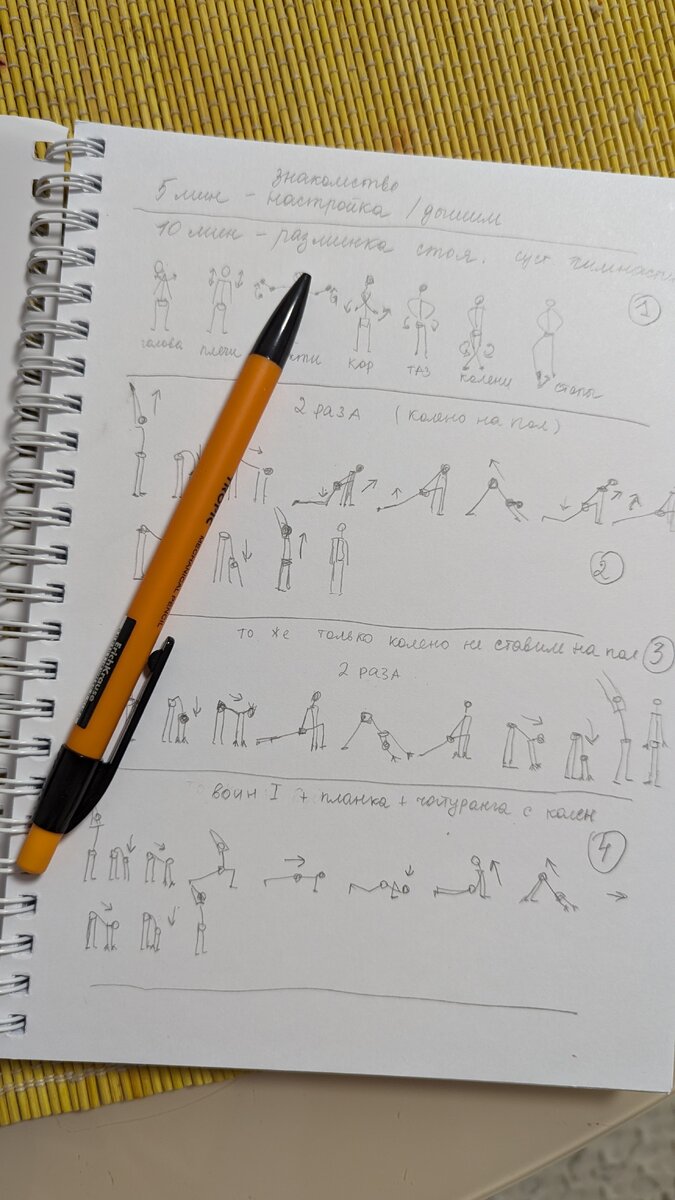 знакомство
5 мин - настройка / дышим
10 мин - разминка стоя. суст гимнаст
1
голова плечи кор таз колени стопы
2 раза (колено на пол)
2
то же только колено не ставим на пол 3
2 раза
воин I + планка + чатуранга с колен
4
TROPIC MECHANICAL PENCIL
ErichKrause